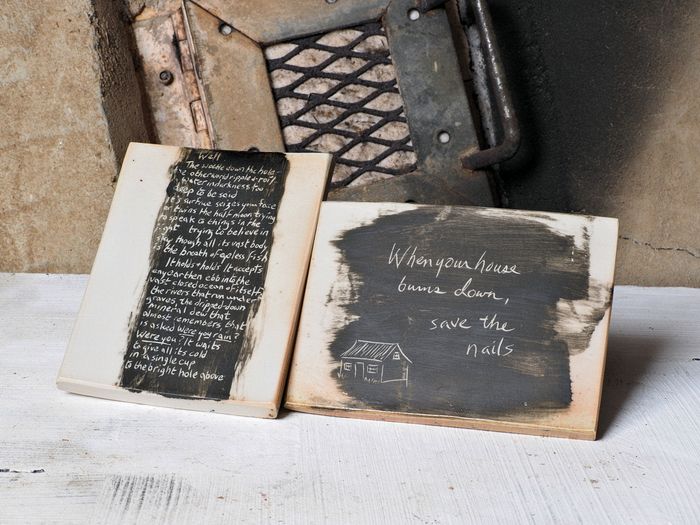 Well
The wobble down the hole
the otherworld ripple & roil
water in darkness too
deep to be said
surface seizes your face
twins the half-moon trying
to speak to things in the
night trying to believe in
sky though all its vast body
is the breath of eyeless fish
It holds & holds It accepts
any jar then ebb into the
vast closed ocean of itself
the rivers that run under
graves, the dripped-down
mineral dew that
almost remembers, that
is asked were you rain?
Were you? It waits
to give all its cold
in a single cup
to the bright hole above
When your house
burns down,
save the
nails